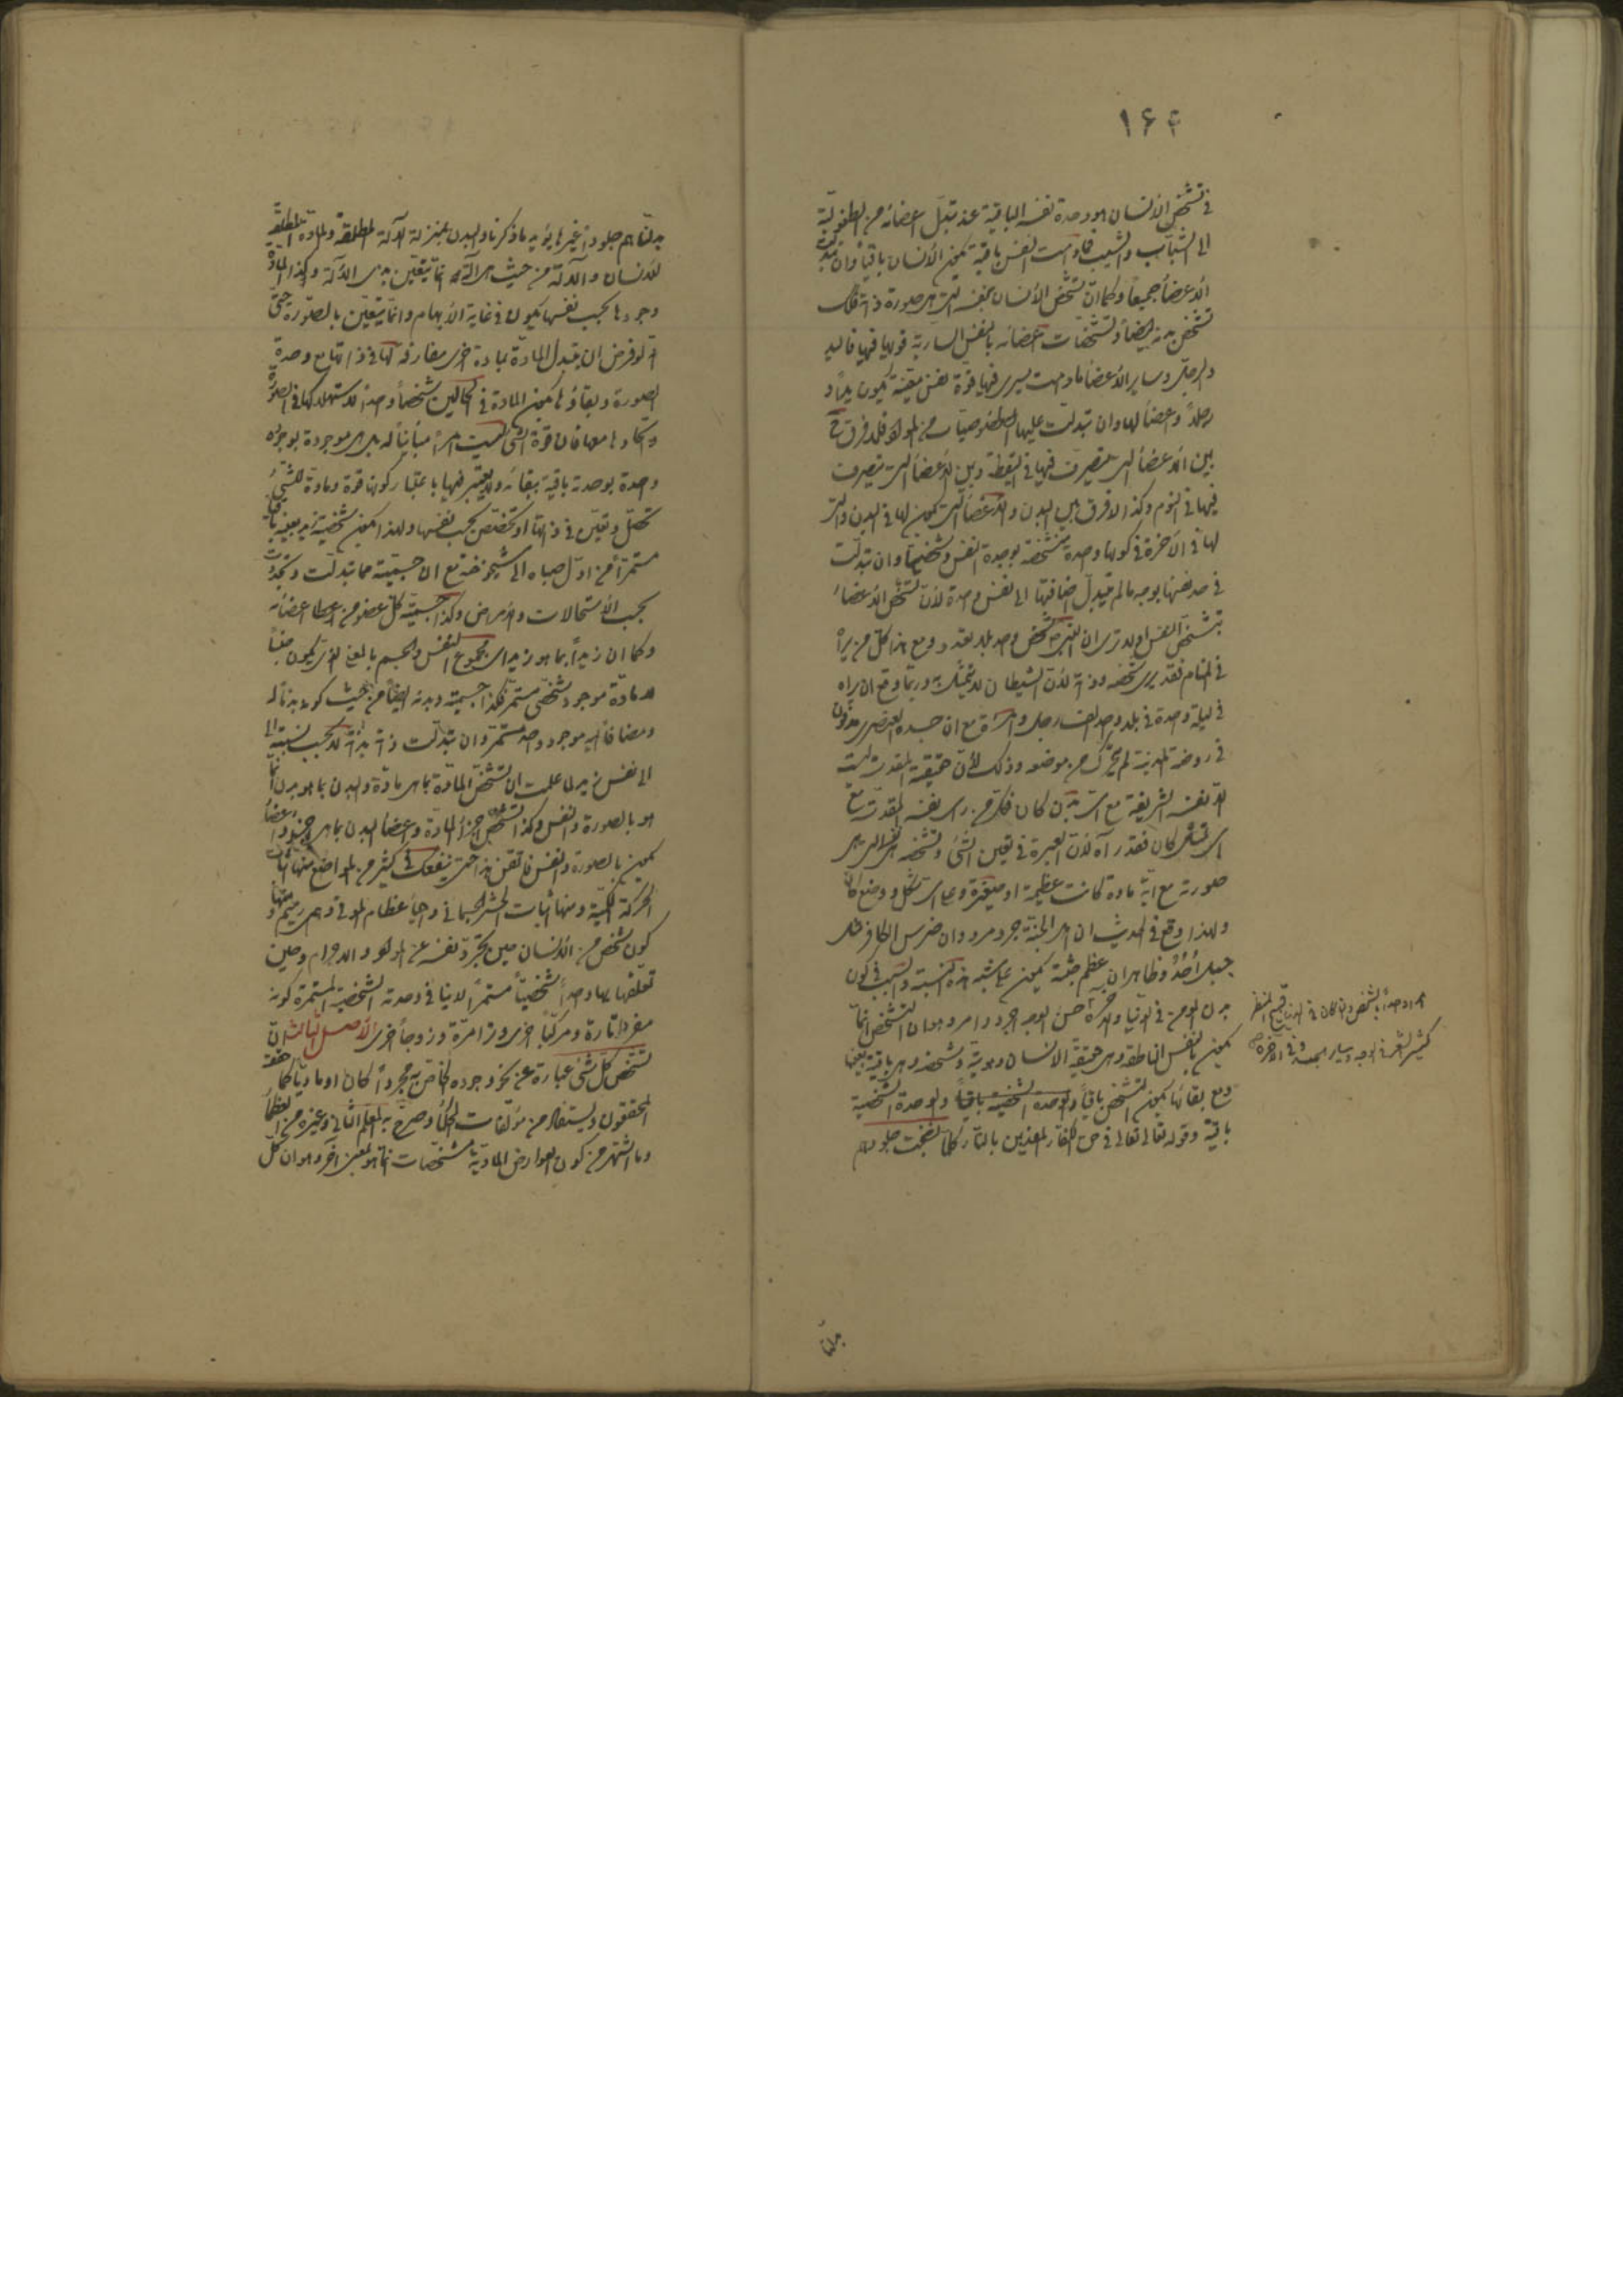 ١۶۴
فی تشخص الأنسان هو وحدة نفسه الباقیة عند تبدل اعضائه من الطفولیة
الی الشباب والشیب فما دامت النفس باقیة یکون الأنسان باقیاً وان تبدلت
الأعضاء جمیعاً وکما ان تشخص الأنسان بنفسه التی هی صورة ذاته فکذلک
تشخص بدنه ایضاً وتشخصات اعضائه بالنفس الساریة قواها فیها فالید
والرجل وسایر الأعضاء ما دامت یسری فیها قوة نفس معینة یکون یداً و
رجلاً واعضاً لها وان تبدلت علیها الخصوصیات من المواد فلا فرق ح
بین الأعضاء التی یتصرف فیها فی الیقظة وبین الأعضاء التی یتصرف
فیها فی النوم وکذا لا فرق بین البدن والأعضاء التی یکون لها فی البدن والتی
لها فی الآخرة فی کونها واحدة متشخصة بوحدة النفس وتشخصها وان تبدلت
فی حد نفسها بوجه ما لم یتبدل اضافتها الی نفس واحدة لأن تشخص الأعضاء
بتشخص النفس اولا تری ان النبی ص شخص واحد بلا تعدد ومع هذا کل من یراه
فی المنام فقد یری شخصه وذاته لأن الشیطان لا یتمثل به وربما وقع ان یراه
فی لیلة واحدة فی بلد واحد الف رجل وامرأة مع ان جسده العنصری مدفون
فی روضة المدینة لم یتحرک من موضعه وذلک لأن حقیقته المقدسة لیست
الا نفسه الشریفة مع ای بدن کان فکل من رای نفسه المقدسة مع
ای تمثل کان فقد رآه لأن العبرة فی تعین الشئ وتشخصه بنفسه التی هی
صورته مع ایة مادة کانت عظیمة او صغیرة وعلی ای شکل ووضع کان
ولهذا وقع فی الحدیث ان اهل الجنة جرد مرد وان ضرس الکافر مثل
جبل اُحُد وظاهر ان عظم جثته یکون علی شبه هذه النسبة والسبب فی کون
بدن المومن فی الدنیا والآخرة حسن الوجه اجرد وامرد هو ان التشخص انما
یکون بالنفس الناطقة وهی حقیقة الانسان وهویته وتشخصه وهی باقیة بعینها
ومع بقائها یکون التشخص باقیاً والوحدة الشخصیة باقیاً والوحدة الشخصیة
باقیة وقوله تعالی تعالی فی حق الکفار المعذبین بالنار کلما نضجت جلودهم
امراً واحداً بالشخص وان کان فی الدنیا قبیح المنظر
کثیر الشعر فی الوجه وسایر الجسد وفی الآخرة ص
بدلنا
بدلناهم جلوداً غیرها یؤید ما ذکرنا والبدن بمنزلة الآلة المطلقة والمادة المطلقة
للانسان والآلة من حیث هی آلة انما یتعین بذی الآلة وکذا المادة
وجودها بحسب نفسها یکون فی غایة الأبهام وانما یتعین بالصورة حتی
انه لو فرض ان یتبدل المادة بمادة اخری مفارقة لها فی ذاتها مع وحدة
الصورة وبقاؤها یکون المادة فی الحالین شخصاً واحداً لاستهلاکها فی الصورة
واتحادها معها فان قوة الشئ لیست امراً مبایناً له بل هی موجودة بوجوده
واحدة بوحدته باقیة ببقائه ولا یعتبر فیها باعتبار کونها قوة ومادة للشئ
تحصل وتعین فی ذاتها او تخصص بحسب نفسها ولهذا یکون شخصیة زید بعینه باقیا
مستمراً من اول صباه الی شیخوخته مع ان جسمیته مما تبدلت وتجددت
بحسب الأستحالات والأمراض وکذا جسمیة کل عضو من اعضائه
وکما ان زیداً بما هو زید ای مجموع النفس والجسم بالمعنی الذی یکون جنساً
لا مادة موجود شخصی مستمر فکذا جسمیته وبدنه ایضاً من حیث کونه بدناً له
ومضافاً الیه موجود واحد مستمر وان تبدلت ذاته بذاته لا بحسب نسبته الی
الی نفس زید لما علمت ان تشخص المادة بما هی مادة والبدن بما هو بدن انما
هو بالصورة والنفس وکذا تشخص اجزاء المادة واعضاء البدن بما هی اجزاء واعضاء
یکون بالصورة والنفس فاتقن هذا حتی ینفعک فی کثیر من المواضع منها اثبات
الحرکة الکمیة ومنها اثبات الحشر الجسمانی واحیاء عظام الموتی وهی رمیم ومنها
کون شخص من الأنسان حین تجرد نفسه عن المواد والاجرام وحین
تعلقها بها واحداً شخصیاً مستمراً لا ینافی وحدته الشخصیة المستمرة کونه
مفرداً تارة ومرکباً اخری وتراً مرة وزوجاً اخری الأصل الثالث ان
تشخص کل شئ عبارة عن نحو وجوده الخاص به مجرداً کان او مادیاً کما حققه
المحققون ویستفاد من مؤلفات الحکماء وصرح به المعلم الثانی وغیره من العظماء
وما اشتهر من کون العوارض المادیة مشخصات انما هو لمعنی آخر وهو ان کل